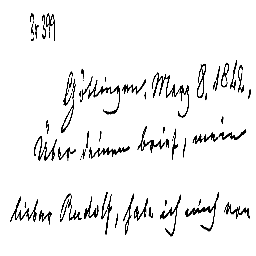 Br 399
Göttingen, Merz 8, 1842,
Über deinen brief, mein
lieber Rudolf, habe ich mich von